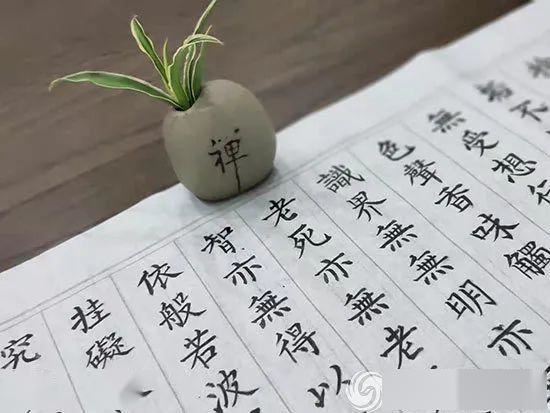 垢不
無受想行
色聲香味觸
識界無無明亦
老死亦無老
智亦無得以
依般若波
挂礙
究
禪